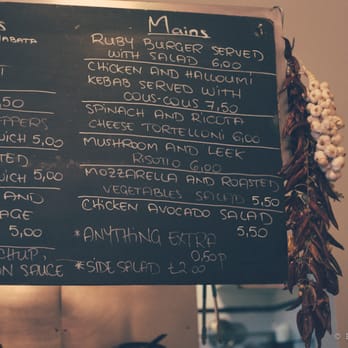 Mains
RUBY BURGER SERVED
WITH SALAD 6,00
CHICKEN AND HALLOUMI
KEBAB SERVED WITH
COUS-COUS 7,50
SPINACH AND RICOTA
CHEESE TORTELLONI 6,00
MUSHROOM AND LEEK
RISOTTO 6,00
MOZZARELLA AND ROASTED
VEGETABLES SALAD 5,50
CHICKEN AVOCADO SALAD
5,50
*ANYTHING EXTRA
0,50p
*SIDE SALAD £2.00
S
,50
PPERS
WICH 5,00
TED
WICH 5,00
AND
AGE
5,00
CHUP,
N SAUCE
©